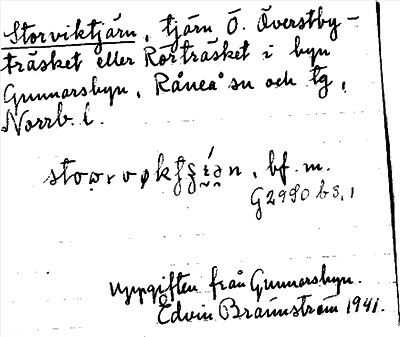 Storviktjärn, tjärn Ö. Överstby-
träsket eller Rörträsket i byn
Gunnarsbyn, Råneå sn och tg,
Norrb. l.
bf. m.
G2990 b3,1
Uppgiften från Gunnarsbyn.
Edvin Brännström 1941.